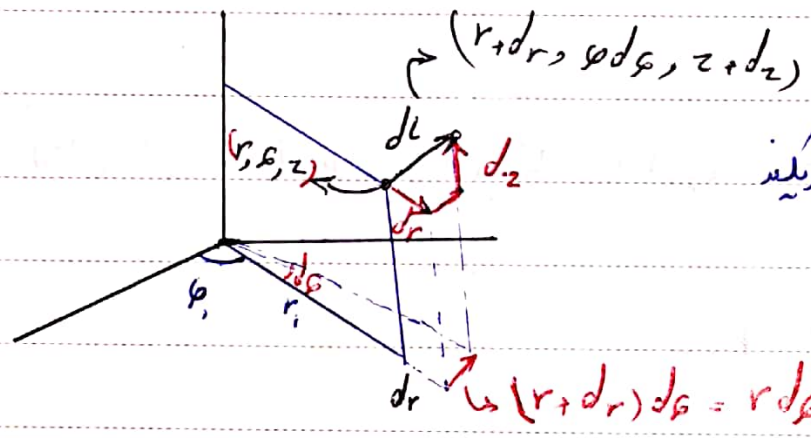 (r+dr, φdφ, z+dz)
dl
(r, φ, z)
dz
dr
dφ
φ₁
r₁
dr
↳ (r+dr)dφ = rdφ